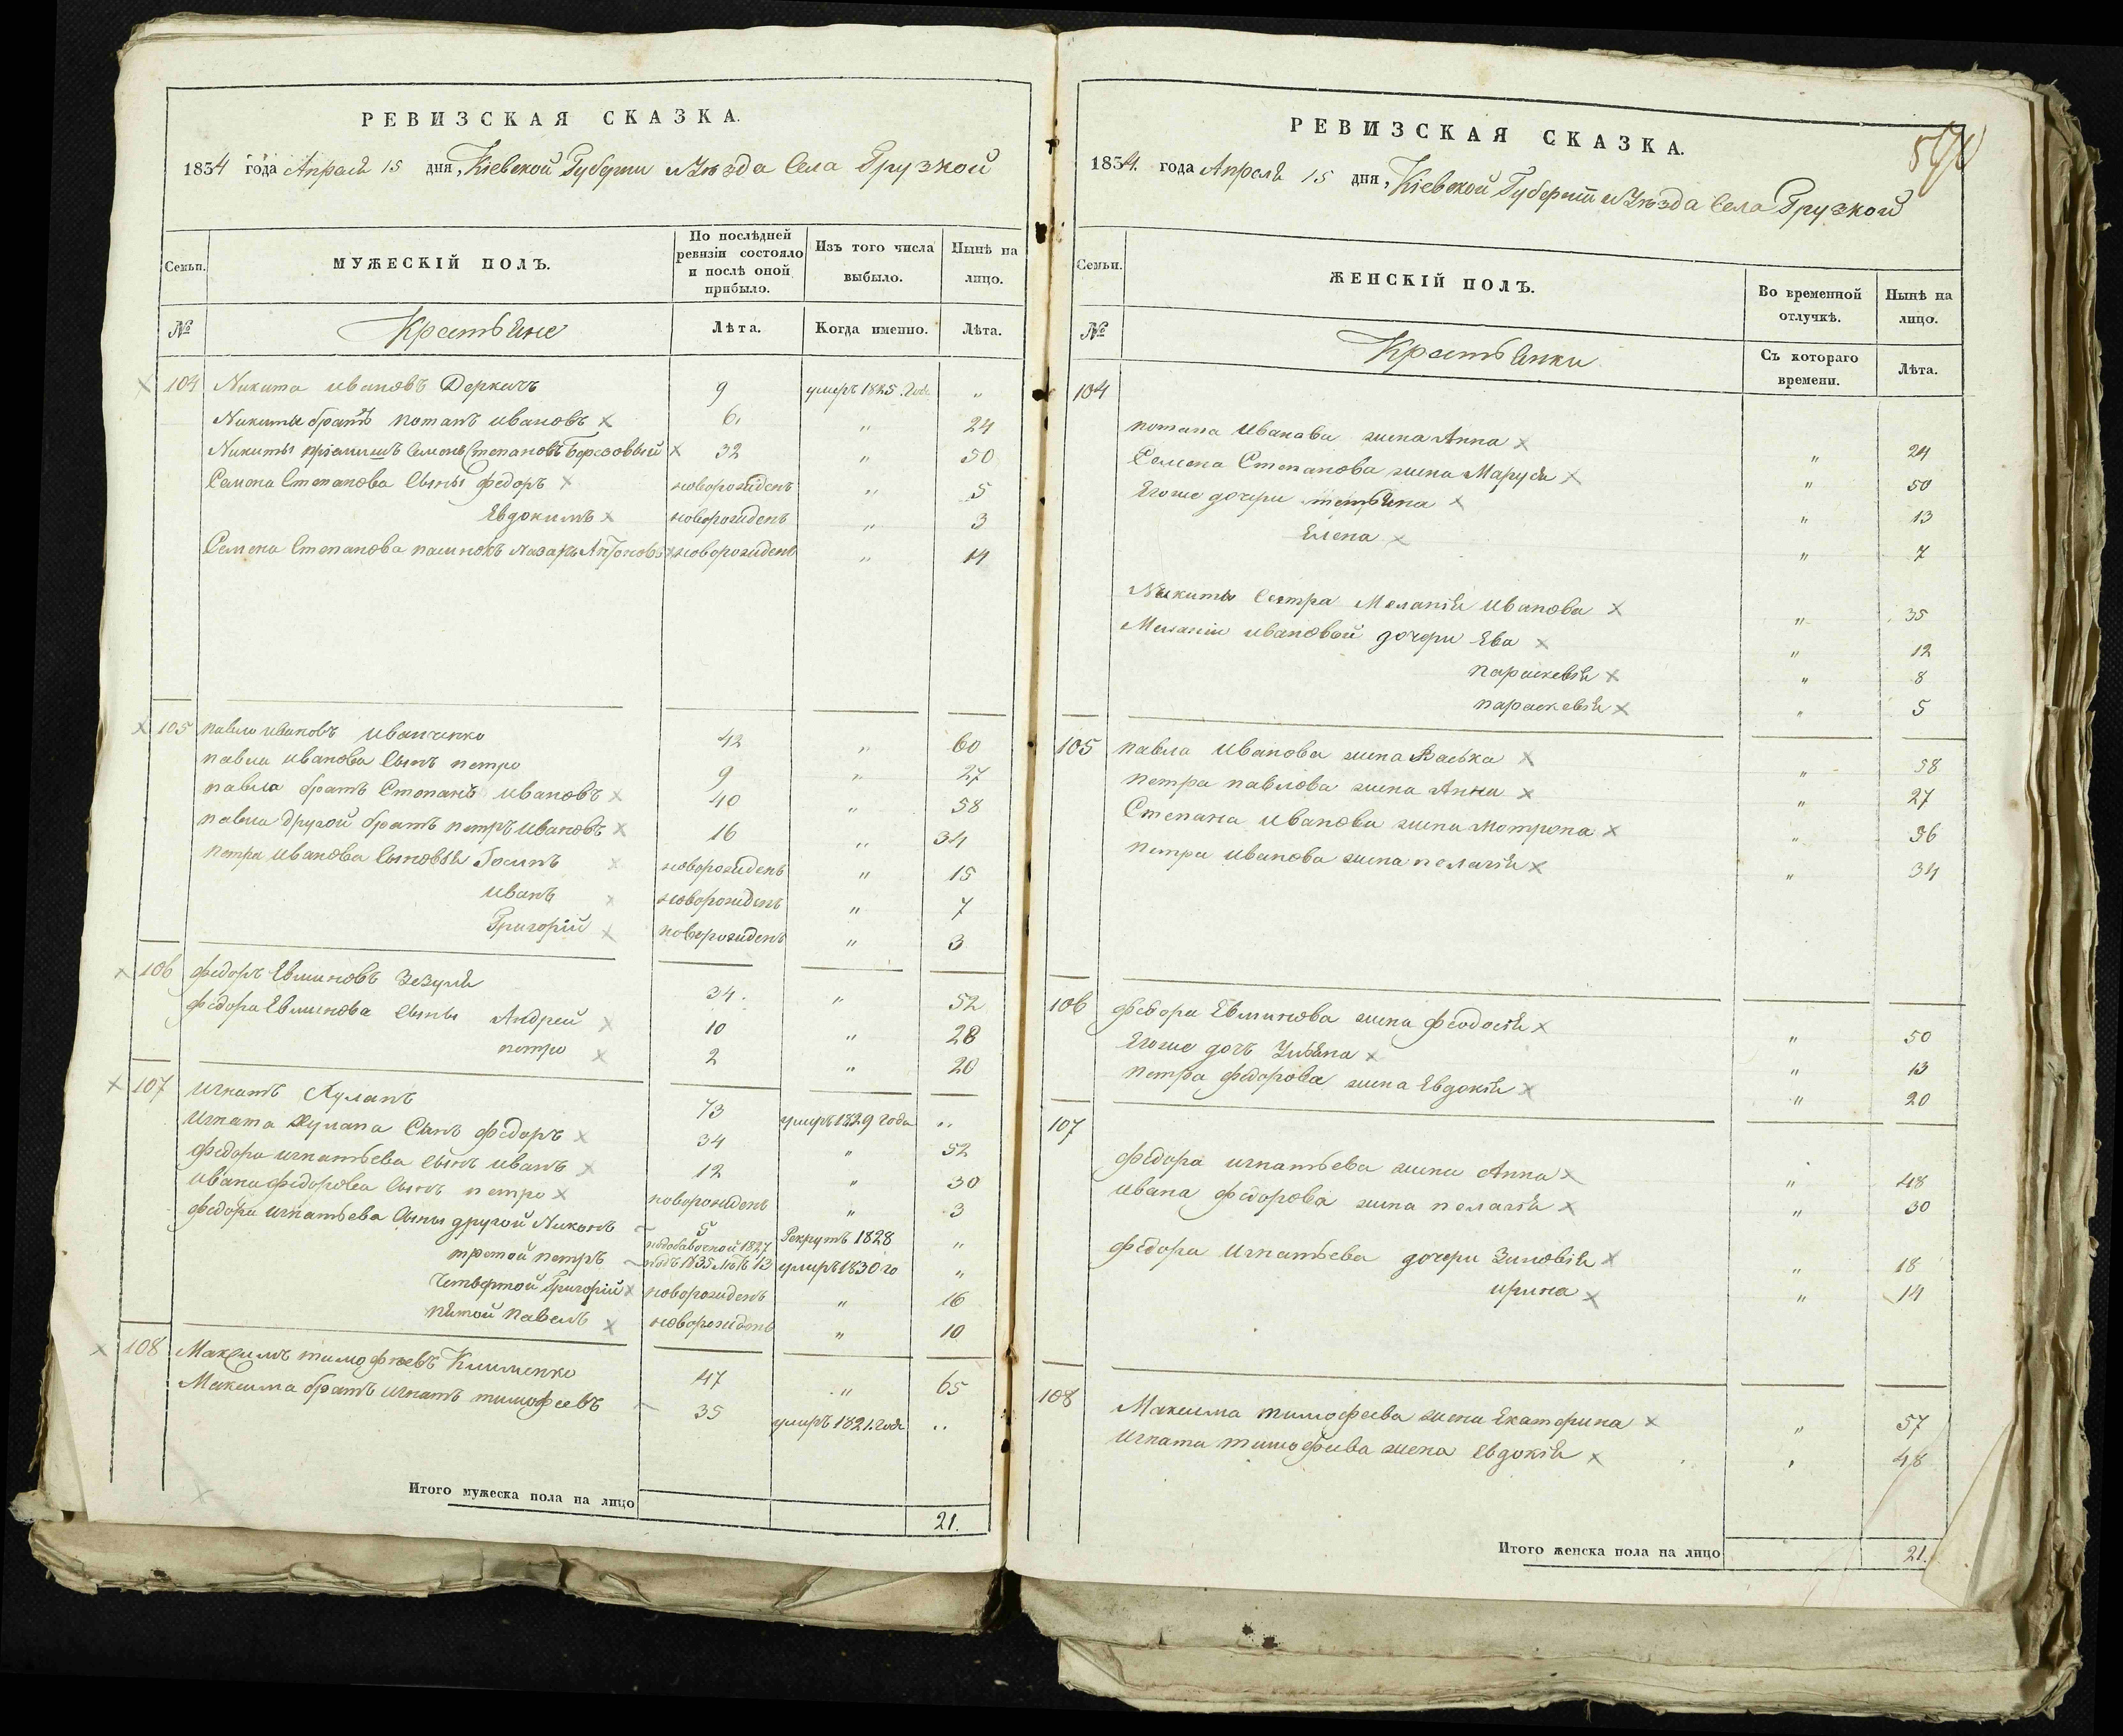 РЕВИЗСКАЯ СКАЗКА.
1834 года Апреля 15 дня, Кіевской Губерніи и Уѣзда Села Грузкой
Семьи. МУЖЕСКІЙ ПОЛЪ. По послѣдней ревизіи состояло и послѣ оной прибыло. Изъ того числа выбыло. Нынѣ на лицо.
№ Крестьяне Лѣта. Когда именно. Лѣта.
104 Никита ивановъ Деркачъ 9 умеръ 1825 года „
Никиты братъ потапъ ивановъ 6. „ 24
Никиты пріемишъ Семенъ Степановъ Березовый 32 „ 50
Семена Степанова Сыны федоръ новорожденъ „ 5
Евдокимъ новорожденъ „ 3
Семена Степанова пасинокъ Назаръ Антоновъ новорожденъ „ 14
105 павло ивановъ иванченко 42 „ 60
павла иванова Сынъ петро 9 „ 27
павла братъ Степанъ ивановъ 40 „ 58
павла другой братъ петръ ивановъ 16 „ 34
петра иванова Сыновья Іосипъ новорожденъ „ 15
иванъ новорожденъ „ 7
Григорій новорожденъ „ 3
106 федоръ Евминовъ Зезуля 34. „ 52
федора Евминова Сыны Андрей 10 „ 28
петро 2 „ 20
107 игнатъ Кулапъ 73 умеръ 1829 года „
игната Кулапа Сынъ федоръ 34 „ 52
федора игнатьева Сынъ иванъ 12 „ 30
ивана федорова Сынъ петро новорожденъ „ 3
федора игнатьева Сыны другой Никонъ 5 Рекрутъ 1828 „
третой петръ 13 умеръ 1830 го „
Четвертой Григорій новорожденъ „ 16
пятой павелъ новорожденъ „ 10
108 Максимъ тимофѣевъ Клименко 47 „ 65
Максима братъ игнатъ тимофеевъ 35 умеръ 1821. года „
Итого мужеска пола на лицо 21.
РЕВИЗСКАЯ СКАЗКА.
1834. года Апреля 15 дня, Кіевской Губерніи и Уѣзда Села Грузкой
Семьи. ЖЕНСКІЙ ПОЛЪ. Во временной отлучкѣ. Нынѣ на лицо.
№ Крестьянки Съ котораго времени. Лѣта.
104
потапа Иванова жена Анна „ 24
Семена Степанова жена Маруся „ 50
Егоже дочери тетьяна „ 13
Елена „ 7
Никиты Сестра Меланія Иванова „ 35
Меланіи ивановой дочери Ева „ 12
параскевія „ 8
параскевія „ 5
105 павла Иванова жена Васька „ 58
петра павлова жена Анна „ 27
Степана иванова жена мотрона „ 36
петра иванова жена пелагія „ 34
106 федора Евминова жена феодосія „ 50
Егоже дочь Ульяна „ 13
петра федорова жена Евдокія „ 20
107
федора игнатьева жена Анна „ 48
ивана федорова жена пелагія „ 30
федора Игнатьева дочери Зиновія „ 18
ирина „ 14
108 Максима тимофеева жена Екатерина „ 57
игната тимофеева жена евдокія „ 48
Итого женска пола на лицо 21.